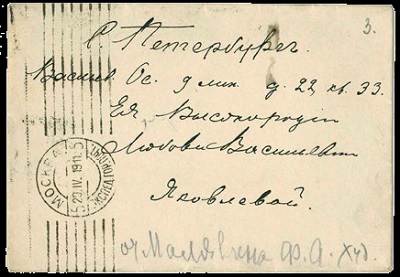 3.
С Петербургъ.
Василь. Ос. 9 лин. д. 22, кв. 33.
Ея Высокородiю
Любови Васильевнѣ
Яковлевой.
МОСКВА
20.IV.1911.
от Малявина Ф. А.